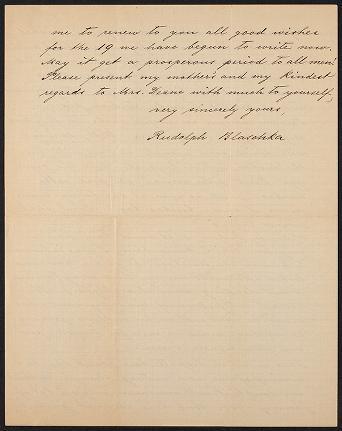 me to renew to you all good wishes
for the 19 we have begun to write now.
May it get a prosperous period to all men!
Please present my mother's and my kindest
regards to Mrs. Deane with much to yourself,
very sincerely yours,
Rudolph Blaschka